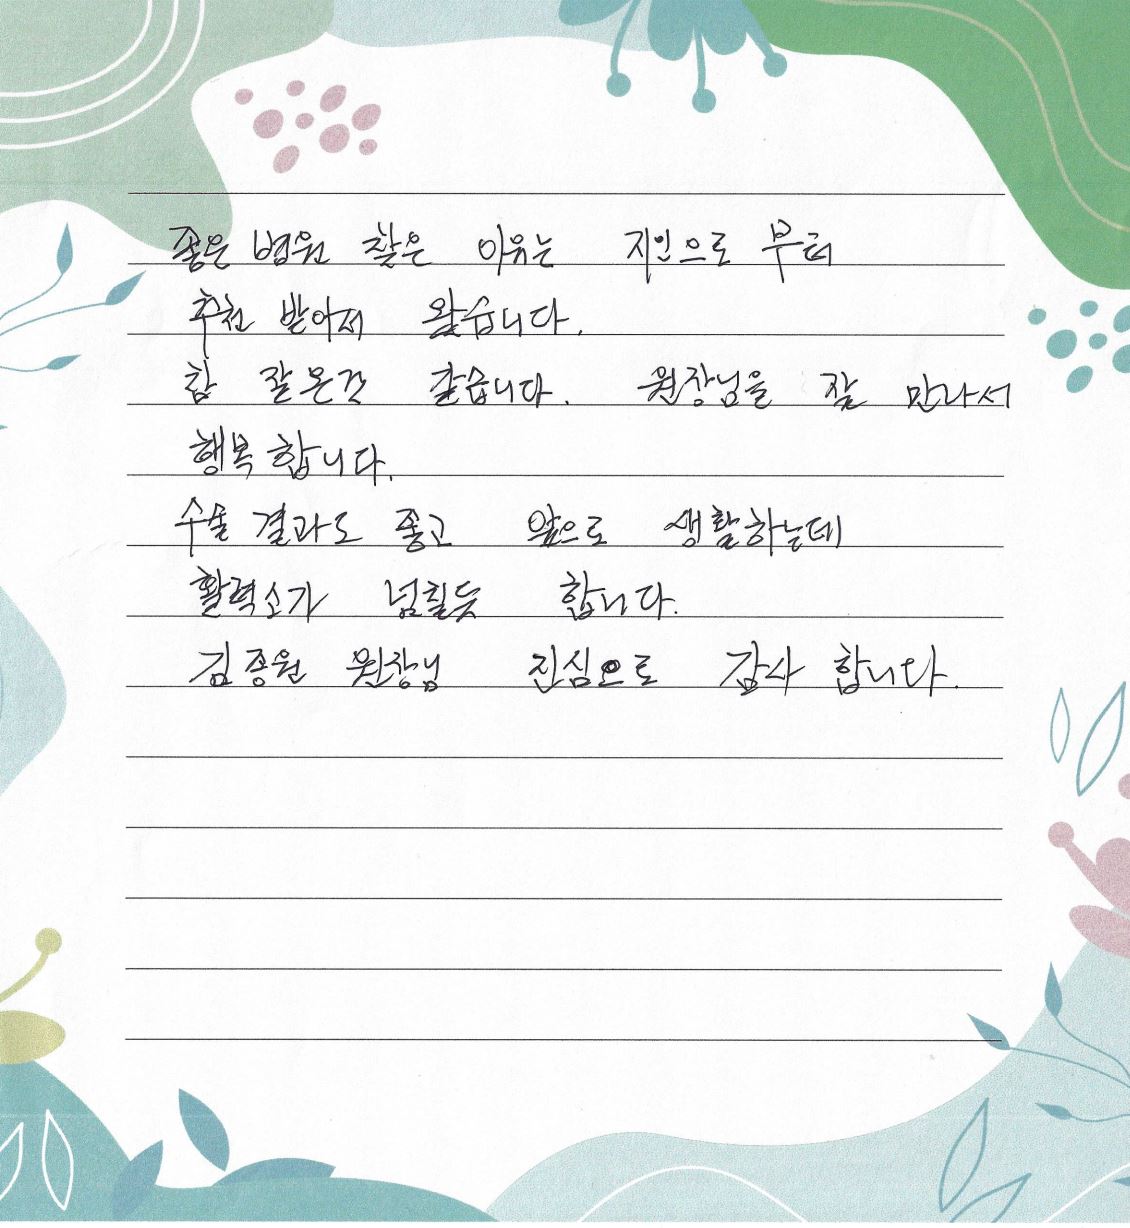 좋은 병원 찾은 이유는 지인으로 부터
추천 받아서 왔습니다.
참 잘온것 같습니다. 원장님을 잘 만나서
행복 합니다.
수술 결과도 좋고 앞으로 생활하는데
활력소가 넘칠듯 합니다.
김종원 원장님 진심으로 감사 합니다.